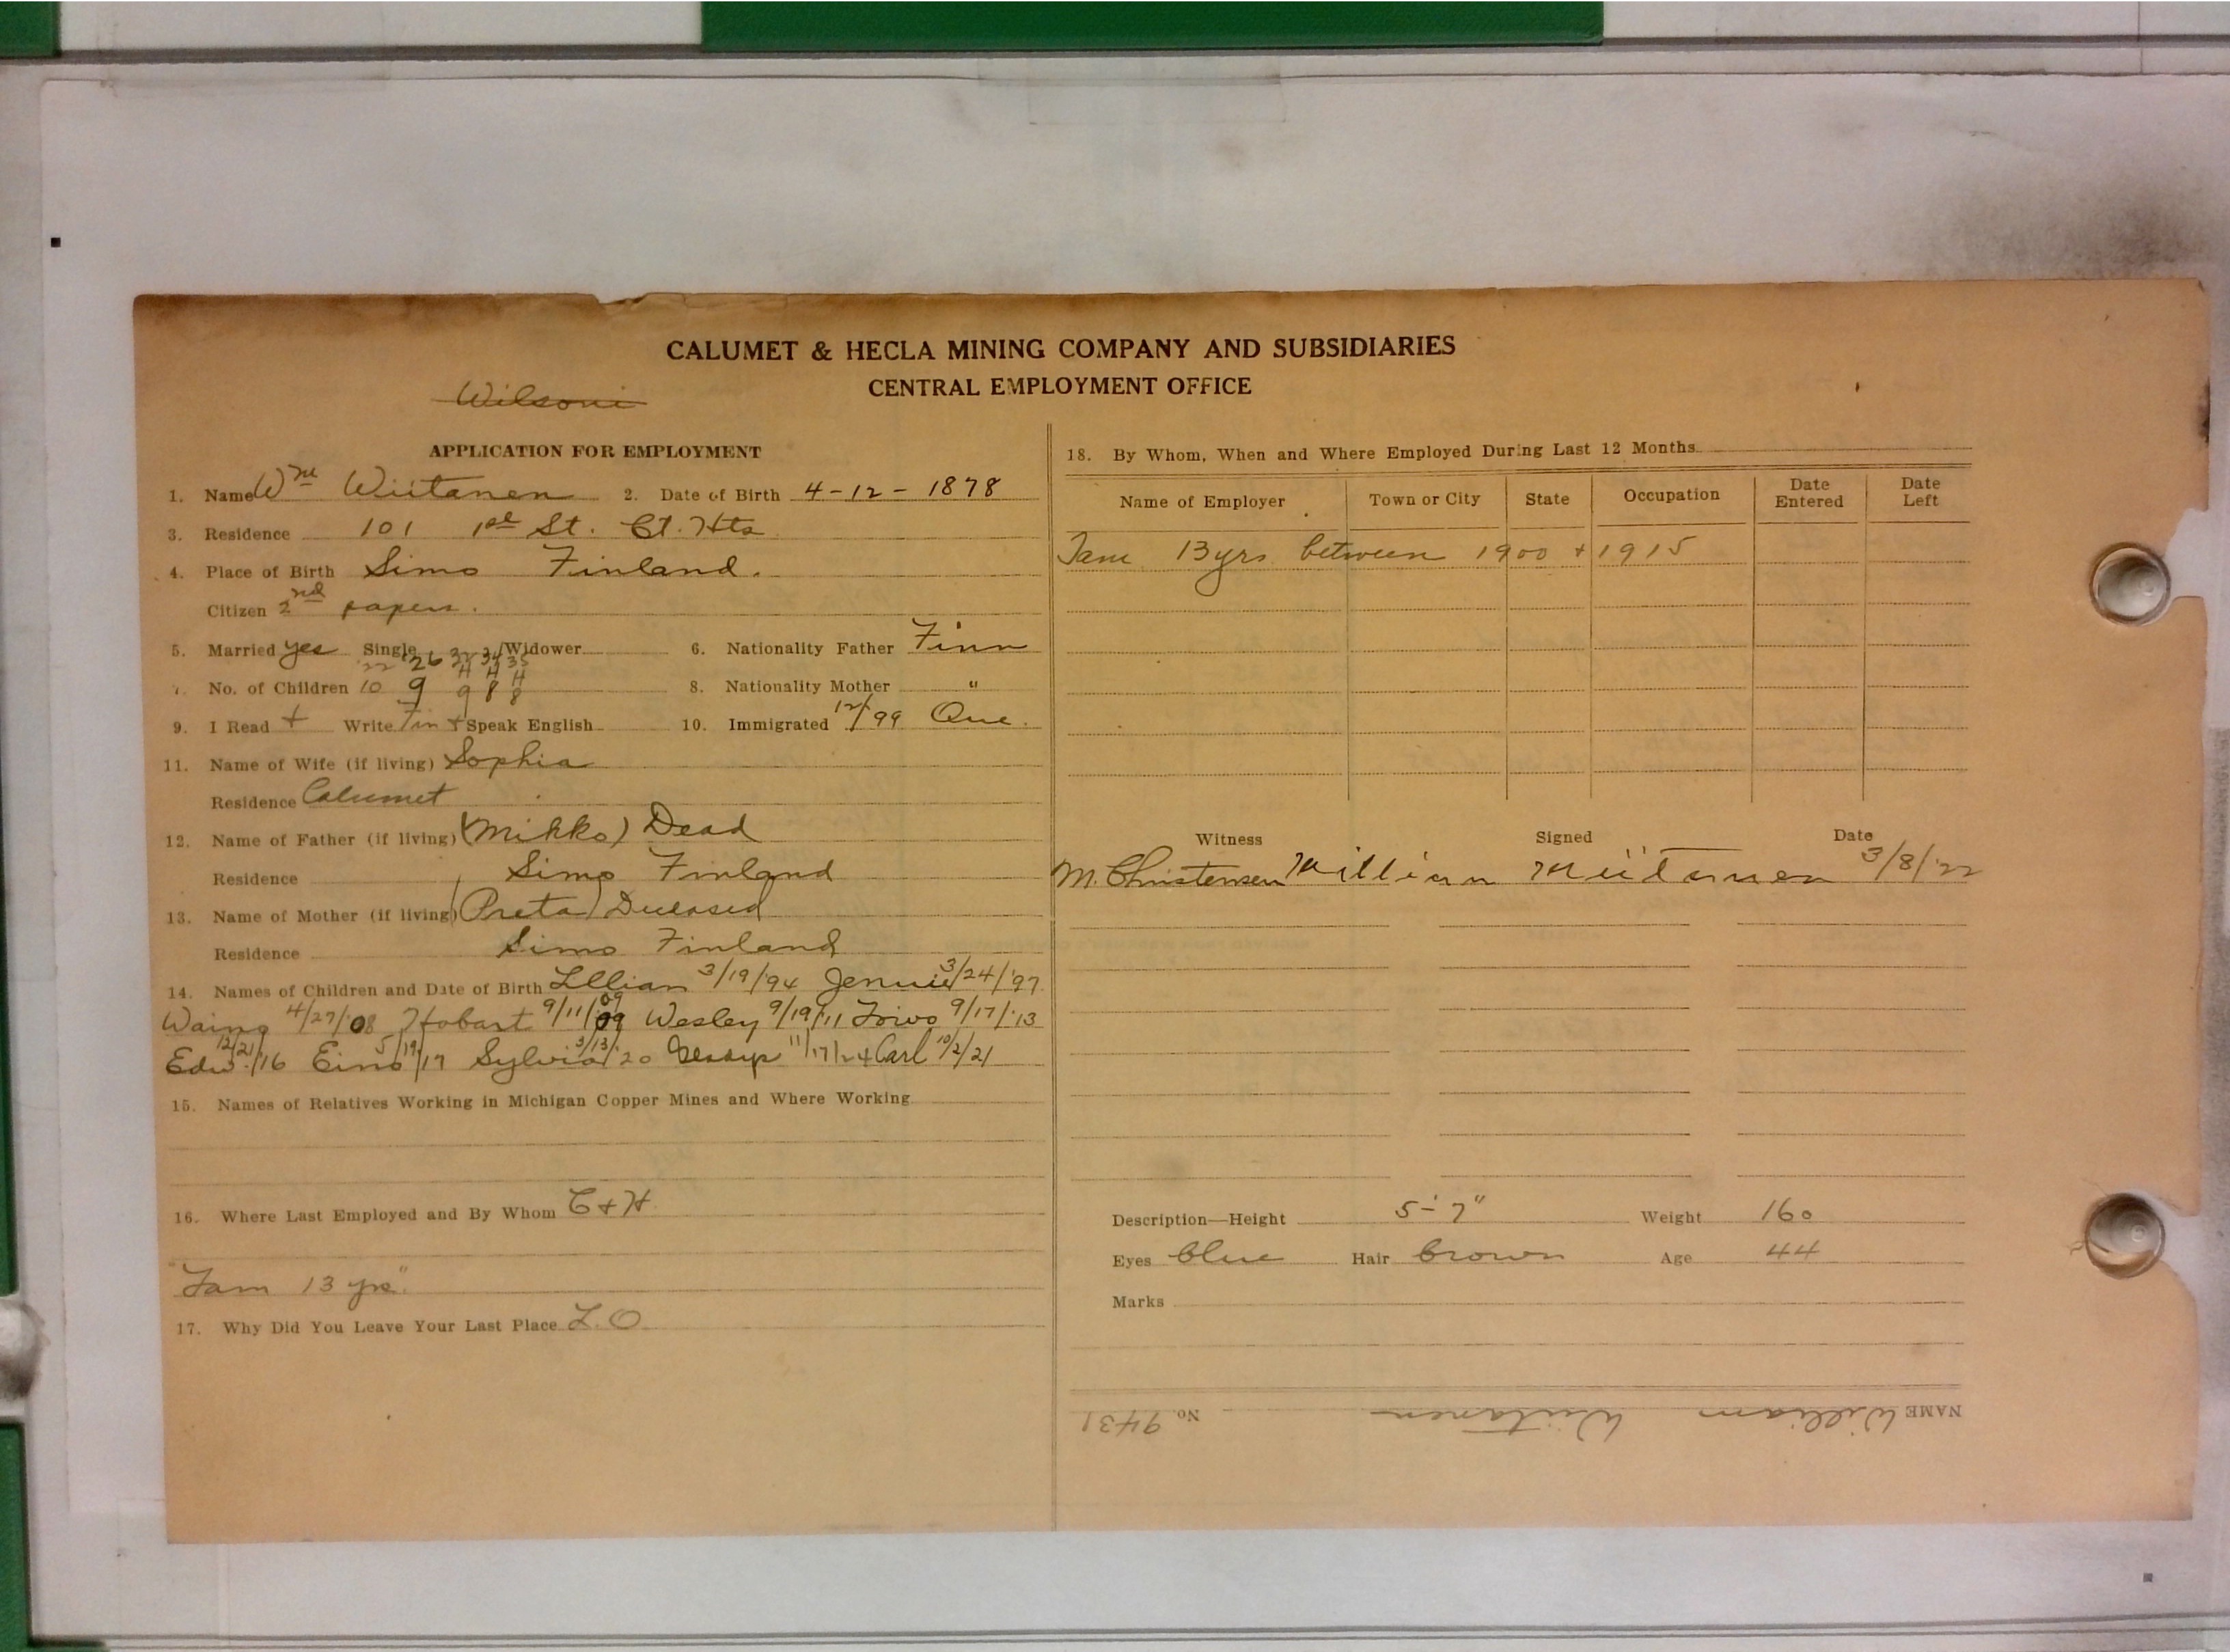 CALUMET & HECLA MINING COMPANY AND SUBSIDIARIES
CENTRAL EMPLOYMENT OFFICE
APPLICATION FOR EMPLOYMENT
1. Name Wm Wiitanen 2. Date of Birth 4-12-1878
3. Residence 101 1st St. Ct. Hts
4. Place of Birth Simo Finland.
Citizen 2nd papers.
5. Married yes Single Widower 6. Nationality Father Finn
22 26 32 34 35
H H H
7. No. of Children 10 9 9 8 8 8. Nationality Mother "
9. I Read + Write Fin + Speak English 10. Immigrated 12/99 Que.
11. Name of Wife (if living) Sophia
Residence Calumet
12. Name of Father (if living) (Mikko) Dead
Residence Simo Finland
13. Name of Mother (if living) (Preta) Deceased
Residence Simo Finland
14. Names of Children and Date of Birth Lllian 3/19/94 Jennie 3/24/'97
Waino 4/27/'08 Hobart 9/11/09 Wesley 9/19/11 Toivo 9/17/'13
Edw. 12/21/16 Eino 5/19/17 Sylvia 3/13/20 11/17/24 Carl 10/2/21
15. Names of Relatives Working in Michigan Copper Mines and Where Working
16. Where Last Employed and By Whom C + H
"Tam 13 yrs"
17. Why Did You Leave Your Last Place L.O
18. By Whom, When and Where Employed During Last 12 Months
Name of Employer Town or City State Occupation Date Entered Date Left
Tam 13 yrs between 1900 + 1915
Witness Signed Date
M. Christensen William Wiitanen 3/8/'22
Description—Height 5'-7" Weight 160
Eyes blue Hair brown Age 44
Marks
NAME William Wiitanen No. 9431